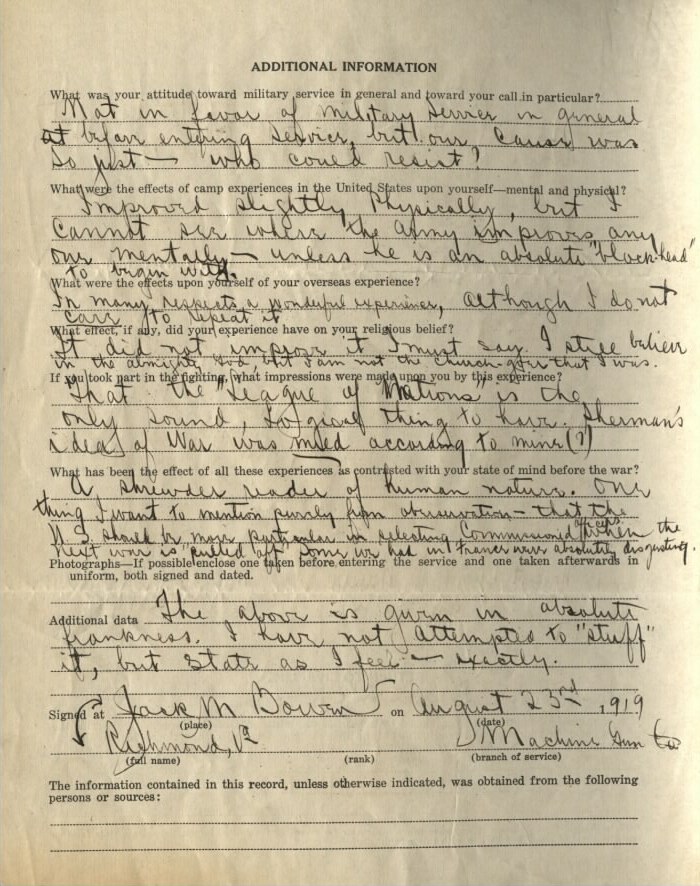 ADDITIONAL INFORMATION
What was your attitude toward military service in general and toward your call in particular?
Not in favor of military service in general
at before entering service, but our cause was
so just — who could resist?
What were the effects of camp experiences in the United States upon yourself—mental and physical?
Improved slightly Physically, but I
cannot see where the army improves any
one mentally — unless he is an absolute "block-head"
to begin with.
What were the effects upon yourself of your overseas experience?
In many respects a wonderful experience, although I do not
care to repeat it
What effect, if any, did your experience have on your religious belief?
It did not improve it I must say. I still believe
in the almighty God, but I am not the church-goer that I was.
If you took part in the fighting, what impressions were made upon you by this experience?
That the "League of Nations is the
only sound, logical thing to have. Sherman's
idea of War was mild according to mine (?)
What has been the effect of all these experiences as contrasted with your state of mind before the war?
A shrewder reader of human nature. One
thing I want to mention purely from observation — that the
U.S. should be more particular in selecting Commissioned officers when the
next war is "pulled off" Some we had in France were absolutely disgusting.
Photographs—If possible enclose one taken before entering the service and one taken afterwards in
uniform, both signed and dated.
Additional data The above is given in absolute
frankness. I have not attempted to "stuff"
it, but state as I feel — exactly.
Signed at Jack M Bowen on August 23rd, 1919
(place) (date)
Richmond, Va Machine Gun Co
(full name) (rank) (branch of service)
The information contained in this record, unless otherwise indicated, was obtained from the following
persons or sources: